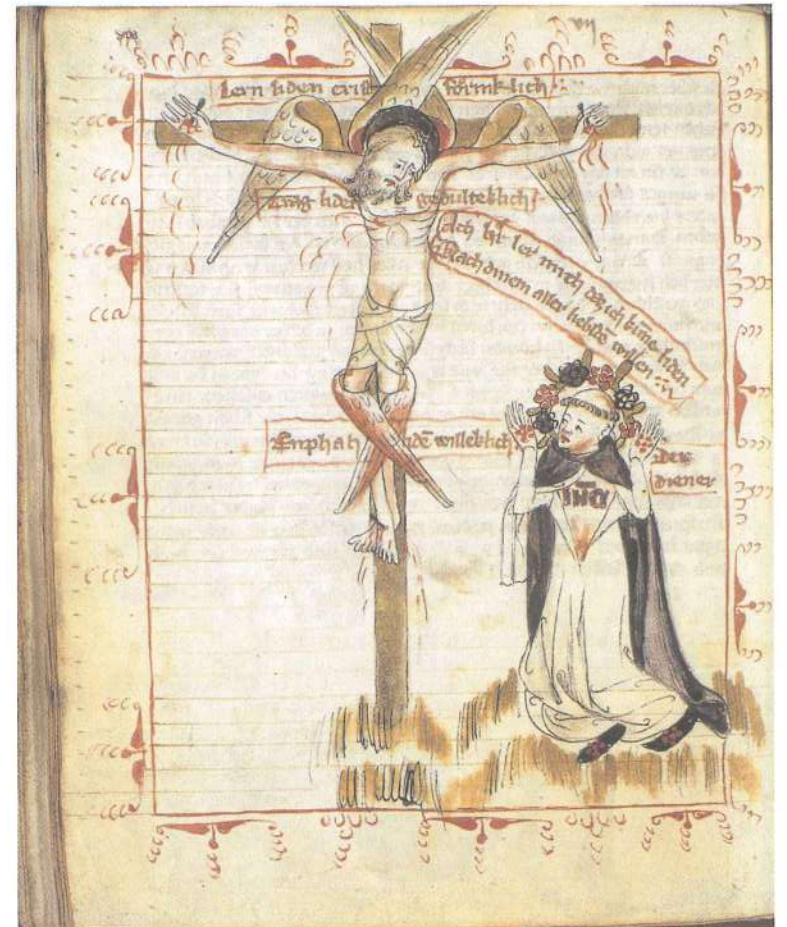 lern liden crist formklich
Trag liden gedulteklich
Ach ler mich ich kunne liden
Nach dinem aller willen
Enphah willeklich
Der
diener